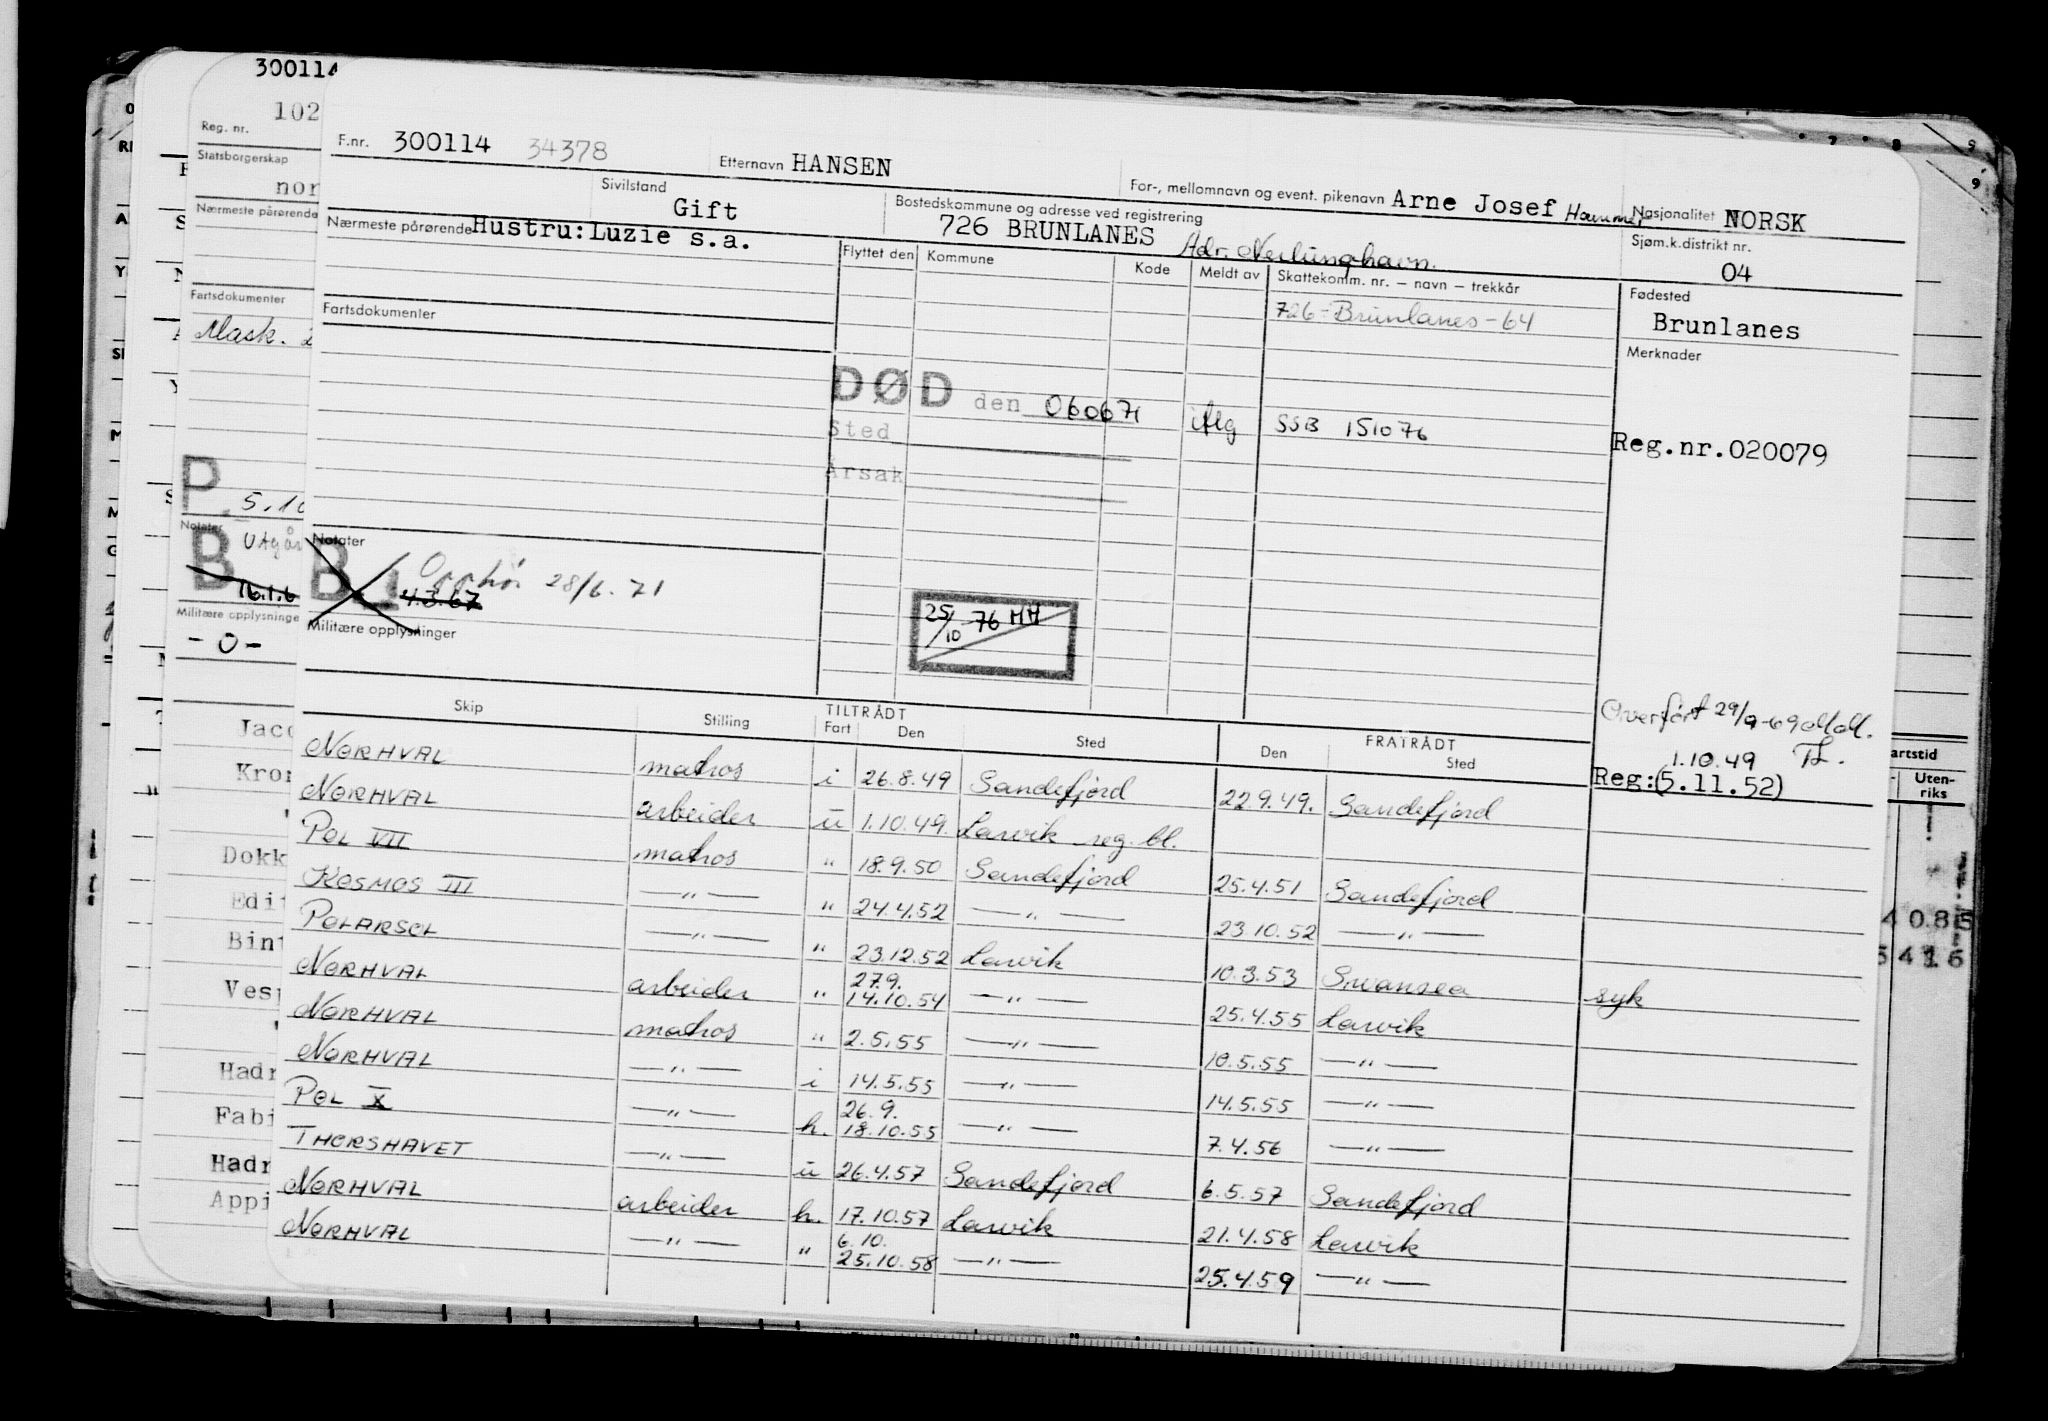 300114
102
Reg. nr.
Statsborgerskap
nor
Nærmeste pårørende
Fartsdokumenter
Mask.
P
5.10
Notater
B
Utgår
16.1.6
Militære opplysninge
- 0 -
Jaco
Kron
Dokk
Edit
Bint
Vesp
Hadr
Fabi
Hadr
Appi
F.nr. 300114 34378 Etternavn HANSEN For-, mellomnavn og event. pikenavn Arne Josef Hammer Nasjonalitet NORSK
Sivilstand Gift
Bostedskommune og adresse ved registrering
726 BRUNLANES Adr. Nevlunghavn.
Sjøm.k.distrikt nr.
04
Nærmeste pårørende Hustru: Luzie s.a.
Flyttet den Kommune Kode Meldt av Skattekomm. nr. – navn – trekkår
726-Brunlanes-64
Fødested
Brunlanes
Fartsdokumenter
Merknader
DØD den 060671 SSB 151076
Sted
Årsak
Reg.nr.020079
Notater
B Opphør 28/6.71
4.3.67
Militære opplysninger
25/10 76 HH
Overført 29/9-69
1.10.49
Reg:(5.11.52)
Skip Stilling TILTRÅDT FRATRÅDT
Fart Den Sted Den Sted
NORHVAL matros i 26.8.49 Sandefjord 22.9.49. Sandefjord
NORHVAL arbeider u 1.10.49. Larvik reg. bl.
POL VII matros " 18.9.50 Sandefjord 25.4.51 Sandefjord
KOSMOS III — " — " 24.4.52 — " — 23.10.52 — " —
POLARSOL — " — " 23.12.52 Larvik 10.3.53 Swansea syk
NORHVAL arbeider " 27.9. 14.10.54 — " — 25.4.55 Larvik
NORHVAL matros " 2.5.55 — " — 10.5.55 — " —
NORHVAL — " — i 14.5.55 — " — 14.5.55 — " —
POL X — " — h. 26.9. 18.10.55 — " — 7.4.56 — " —
THORSHAVET — " — u 26.4.57 Sandefjord 6.5.57 Sandefjord
NORHVAL arbeider h. 17.10.57 Larvik 21.4.58 Larvik
NORHVAL — " — " 6.10. 25.10.58 — " — 25.4.59 — " —
artstid
Uten-
riks
4 0 8 5
5 4 1 6